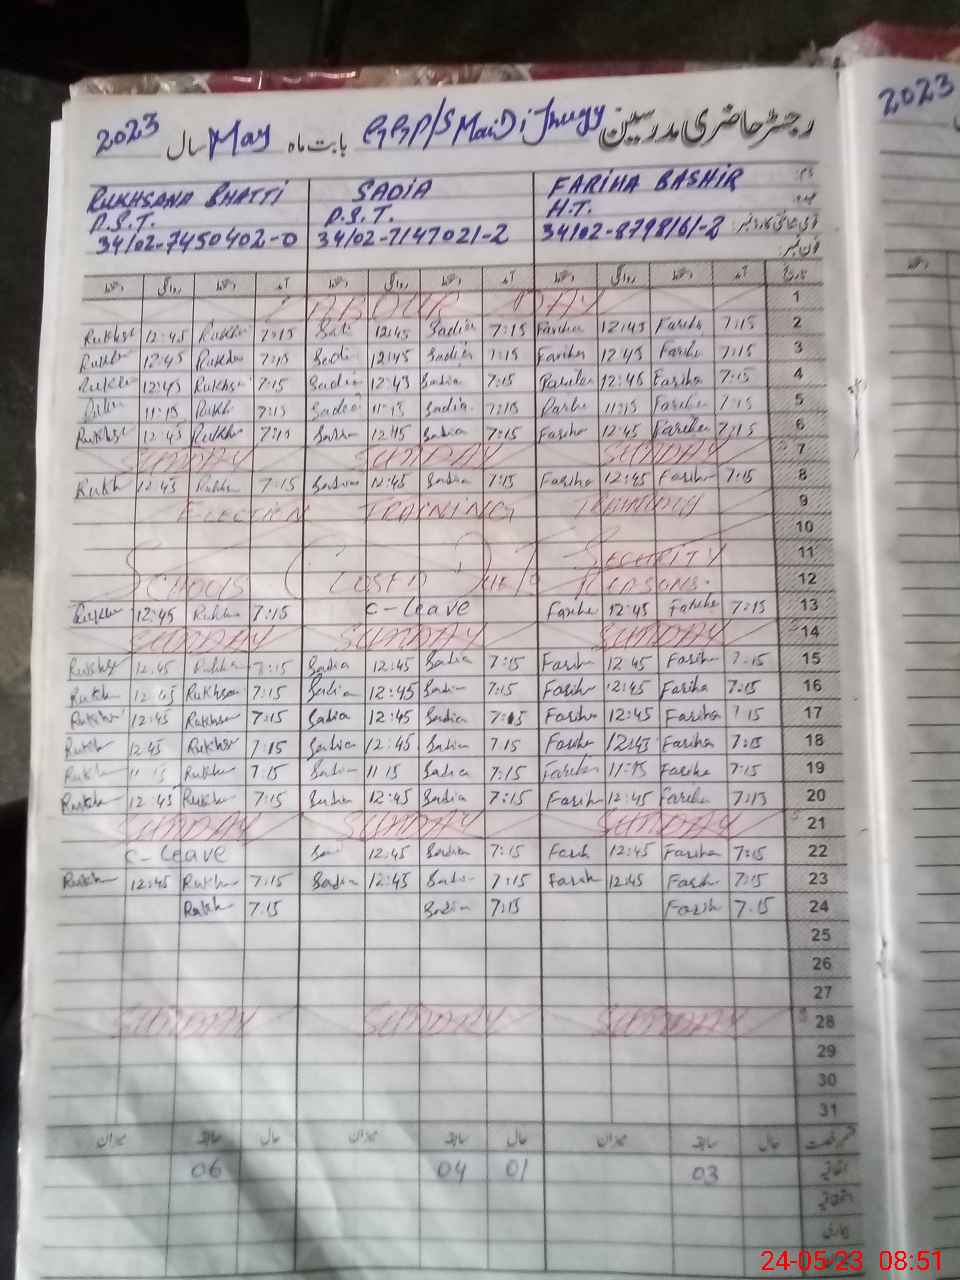 رجسٹر حاضری مدرسین GGP/S Mandi Jhuggi بابت ماہ May سال 2023
2023
RUKHSANA BHATTI SADIA FARIHA BASHIR نام:
P.S.T. P.S.T. H.T. عہدہ:
34102-7450402-0 34102-7147021-2 34102-8798161-2
فون نمبر:
دستخط روانگی دستخط آمد دستخط روانگی دستخط آمد دستخط روانگی دستخط آمد تاریخ
LABOUR DAY 1
Rukhse 12:45 Rukhs 7:15 Sadi 12:45 Sadia 7:15 Fariha 12:45 Fariha 7:15 2
Rukhs 12:45 Rukhs 7:15 Sadi 12:45 Sadia 7:15 Fariha 12:45 Fariha 7:15 3
Rukhs 12:45 Rukhsa 7:15 Sadia 12:45 Sadia 7:15 Fariha 12:45 Fariha 7:15 4
11:15 Rukh 7:15 Sadia 11:15 Sadia 7:15 Fariha 11:15 Fariha 7:15 5
Rukhse 12:45 Rukhs 7:15 Sadia 12:45 Sadia 7:15 Fariha 12:45 Fariha 7:15 6
SUNDAY SUNDAY SUNDAY 7
Rukh 12:45 Rukhs 7:15 Sadia 12:45 Sadia 7:15 Fariha 12:45 Fariha 7:15 8
ELECTION TRAINING TRAINING 9
10
SECURITY 11
SCHOOLS CLOSED DUE TO REASONS. 12
Rukhs 12:45 Rukhs 7:15 C-leave Fariha 12:45 Fariha 7:15 13
SUNDAY SUNDAY SUNDAY 14
Rukhse 12:45 Rukhs 7:15 Sadia 12:45 Sadia 7:15 Farih 12 45 Farih 7:15 15
Rukh 12:45 Rukhsa 7:15 Sadia 12:45 Sadia 7:15 Farih 12:45 Fariha 7:15 16
Rukhs 12:45 Rukhse 7:15 Sadia 12:45 Sadia 7:15 Farih 12:45 Fariha 7 15 17
Rukh 12:45 Rukhse 7:15 Sadia 12:45 Sadia 7 15 Farihe 12:45 Fariha 7:15 18
Rukhs 11 15 Rukhs 7:15 Sadia 11 15 Sadia 7:15 Fariha 11:15 Fariha 7:15 19
Rukhs 12:45 Rukhs 7:15 Sadia 12:45 Sadia 7:15 Farih 12:45 Fariha 7:15 20
SUNDAY SUNDAY SUNDAY 21
C-leave Sad 12:45 Sadia 7:15 Farih 12:45 Fariha 7:15 22
Rukh 12:45 Rukh 7:15 Sadia 12:45 Sadia 7:15 Farih 12:45 Farih 7:15 23
Rukh 7:15 Sadia 7:15 Farih 7.15 24
25
26
27
SUNDAY SUNDAY SUNDAY 28
29
30
31
میزان سابقہ حال میزان سابقہ حال میزان سابقہ حال قسم رخصت
06 04 01 03 اتفاقیہ
24-05-23 08:51